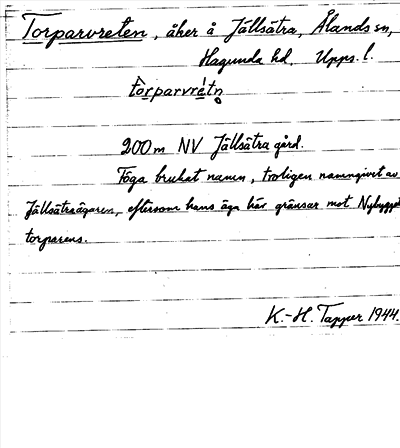 Torparvreten, åker å Jällsätra, Ålands sn,
Hagunda hd, Upps. l.
tòrparvre̍tn̥
200 m NV Jällsätra gård.
Föga brukat namn, troligen namngivet av
Jällsätraägaren, eftersom hans äga här gränsar mot Nybygge
torparens.
K.-H. Tapper 1944.